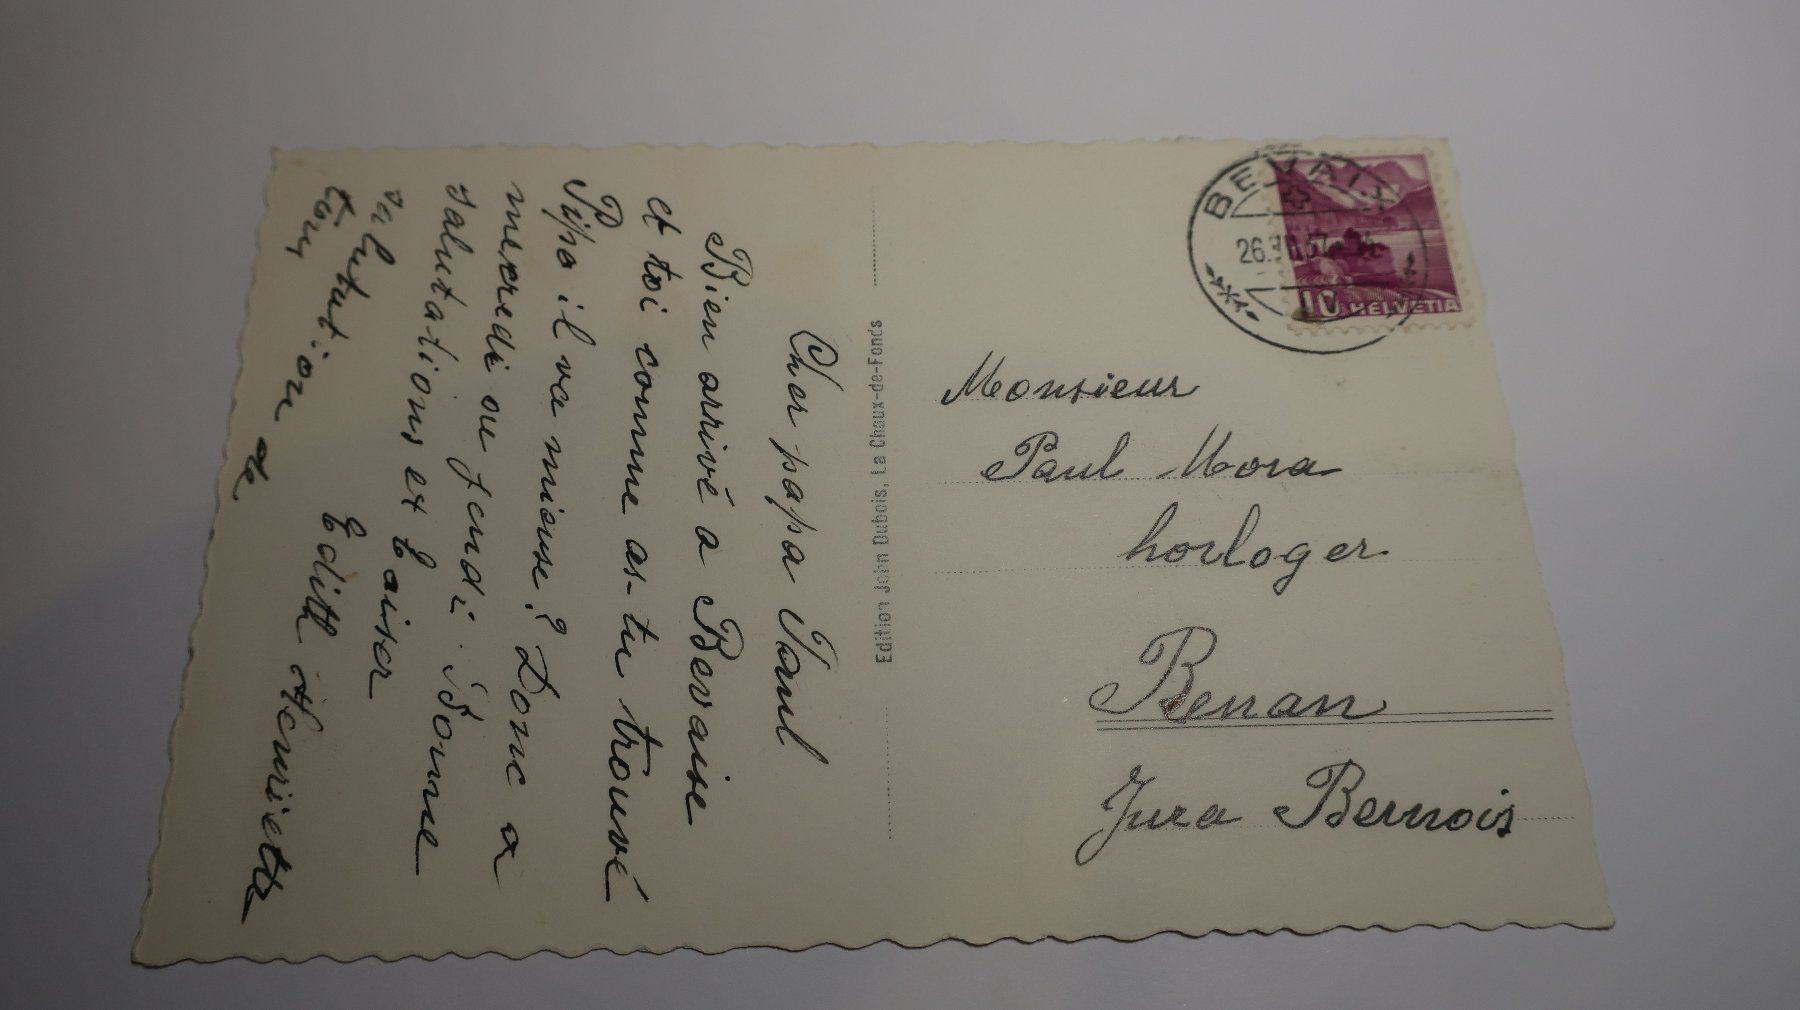 Cher papa Paul
Bien arrivé a Bevaise
et toi comme as-tu trouvé
Pipo il va mieuse? Donc a
mecredi ou jeudi. Bonne
salutations et baiser
salutution de
tous
Edith Henriette
Edition John Dubois, La Chaux-de-Fonds
BEVAIX
26. 37
10 HELVETIA
Monsieur
Paul Mora
horloger
Renan
Jura Bernois